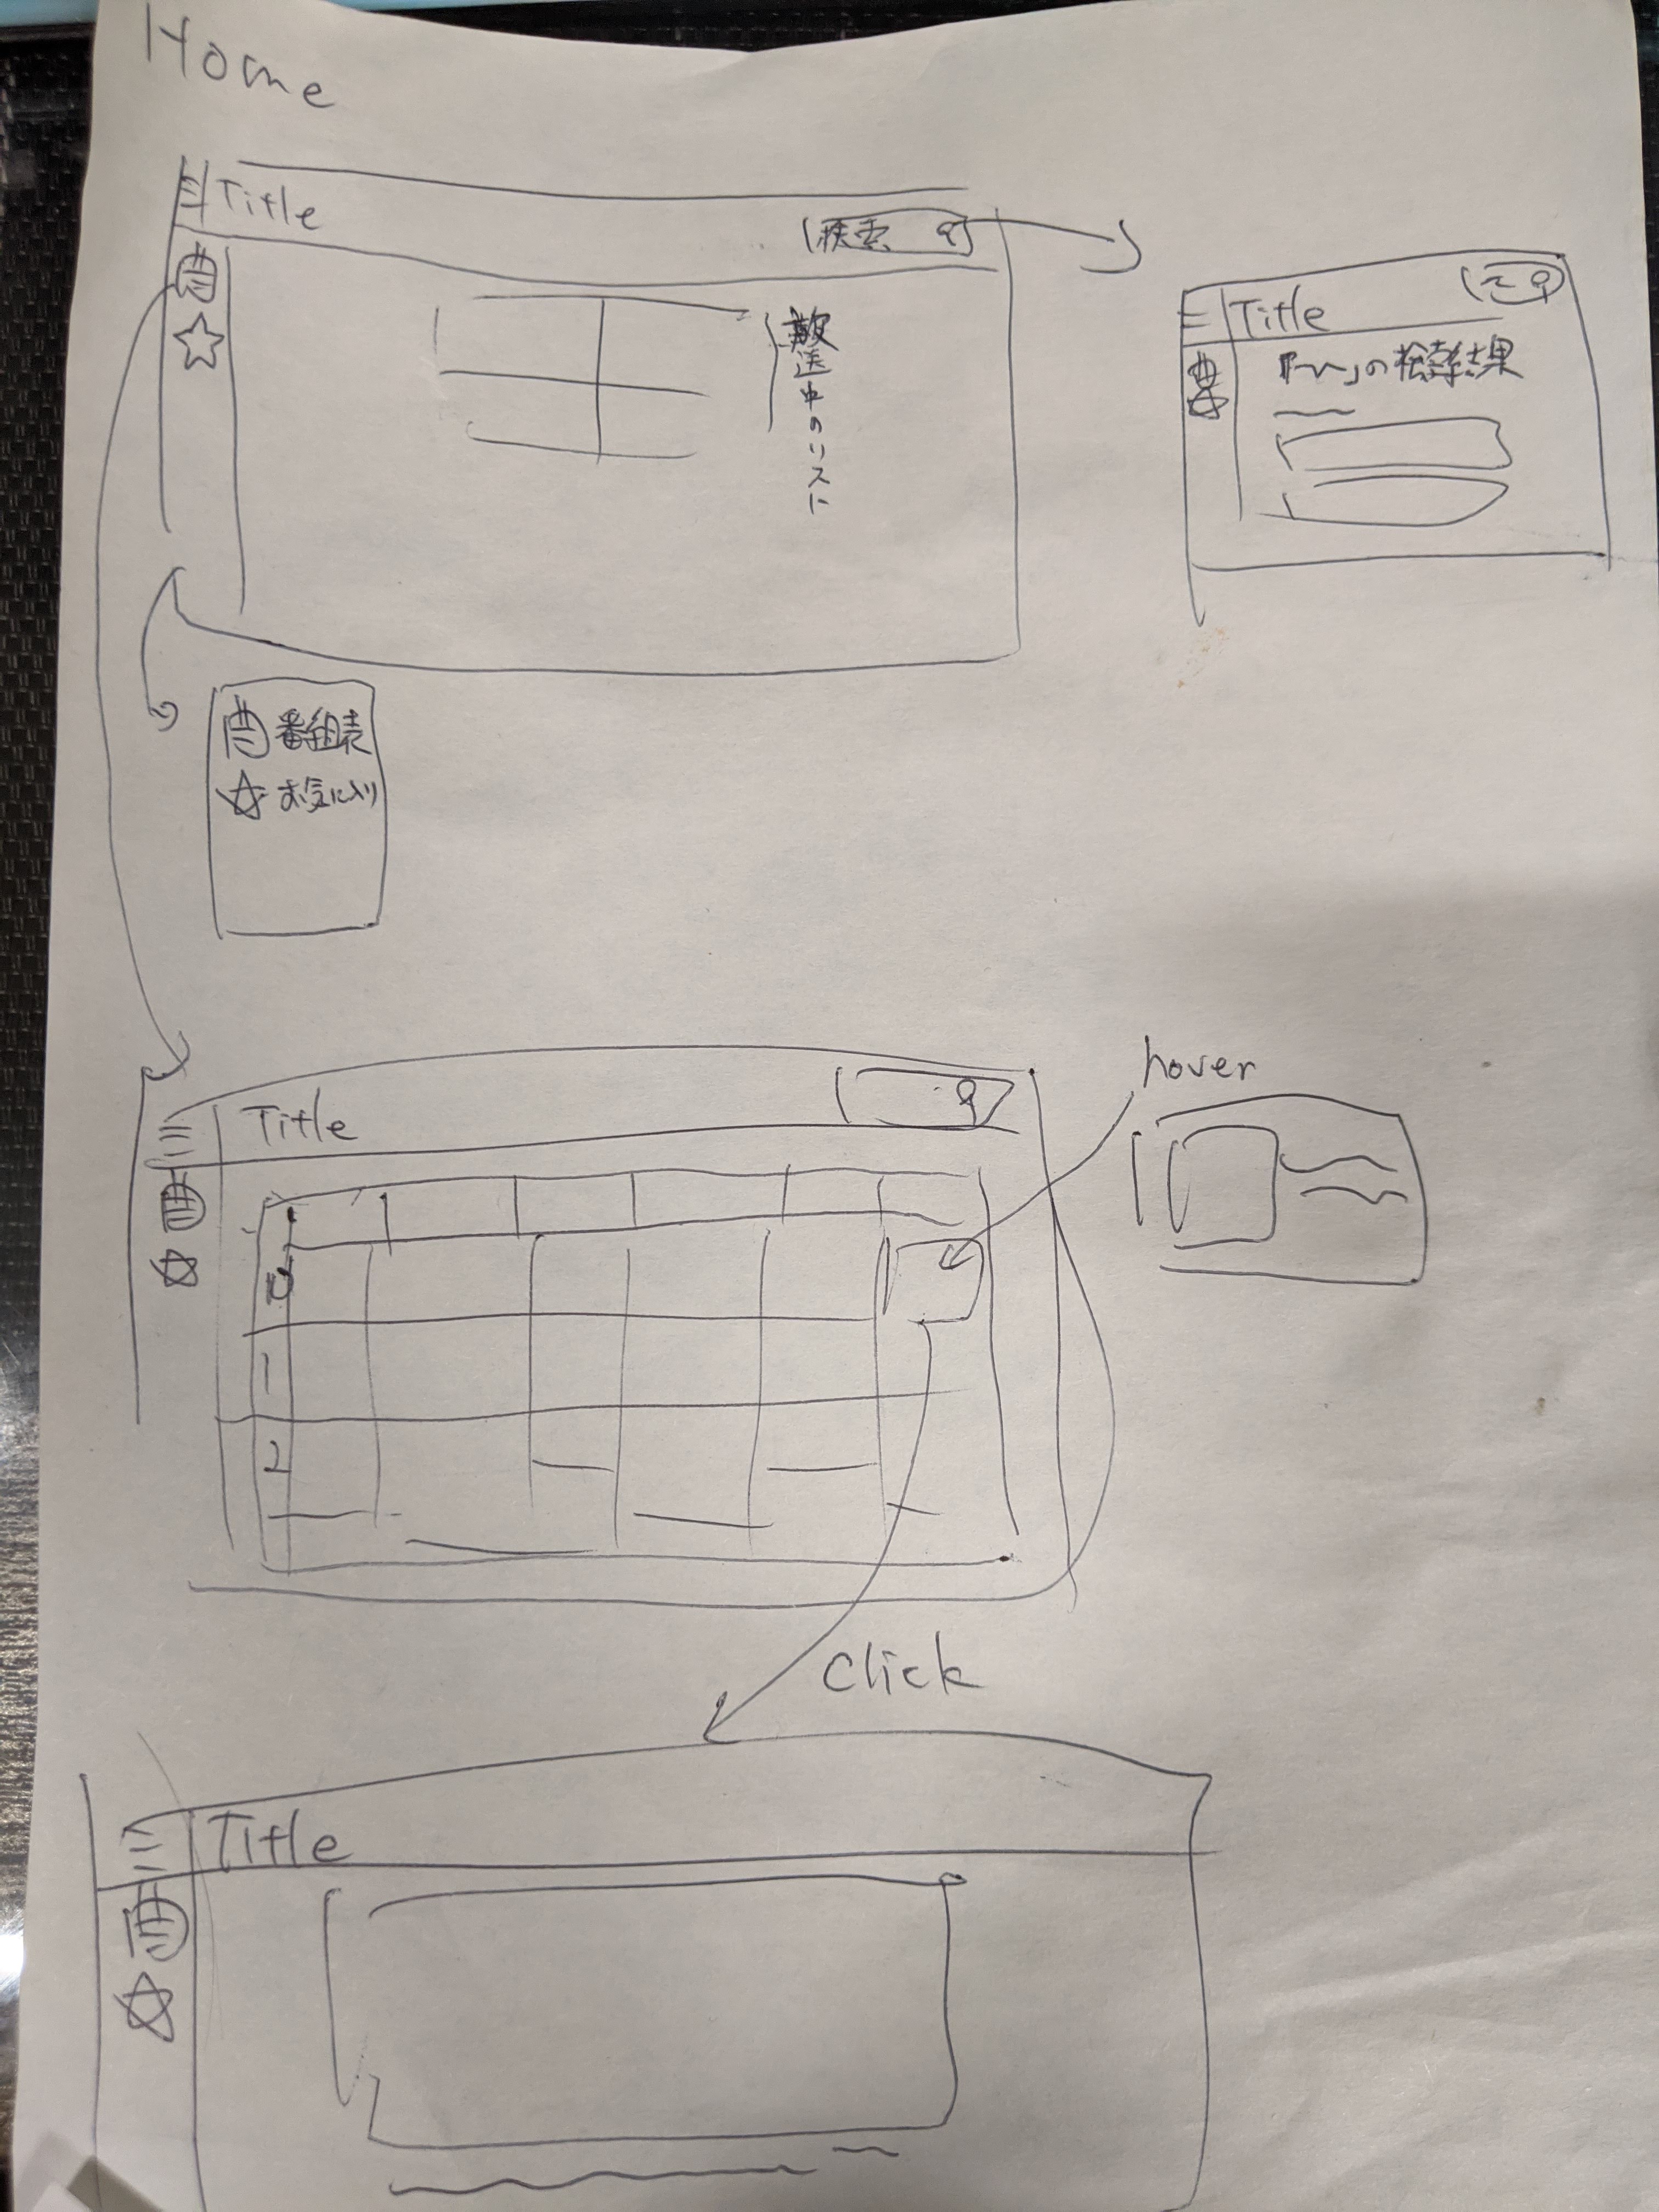 Home
Title
検索
放送中のリスト
Title
「~」の検索結果
番組表
お気に入り
hover
Title
0
1
2
Click
Title